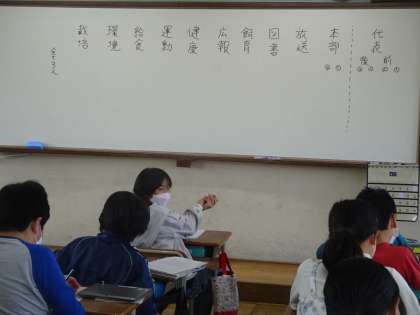 代表
前
後
本部
放送
図書
飼育
広報
健康
運動
給食
環境
栽培